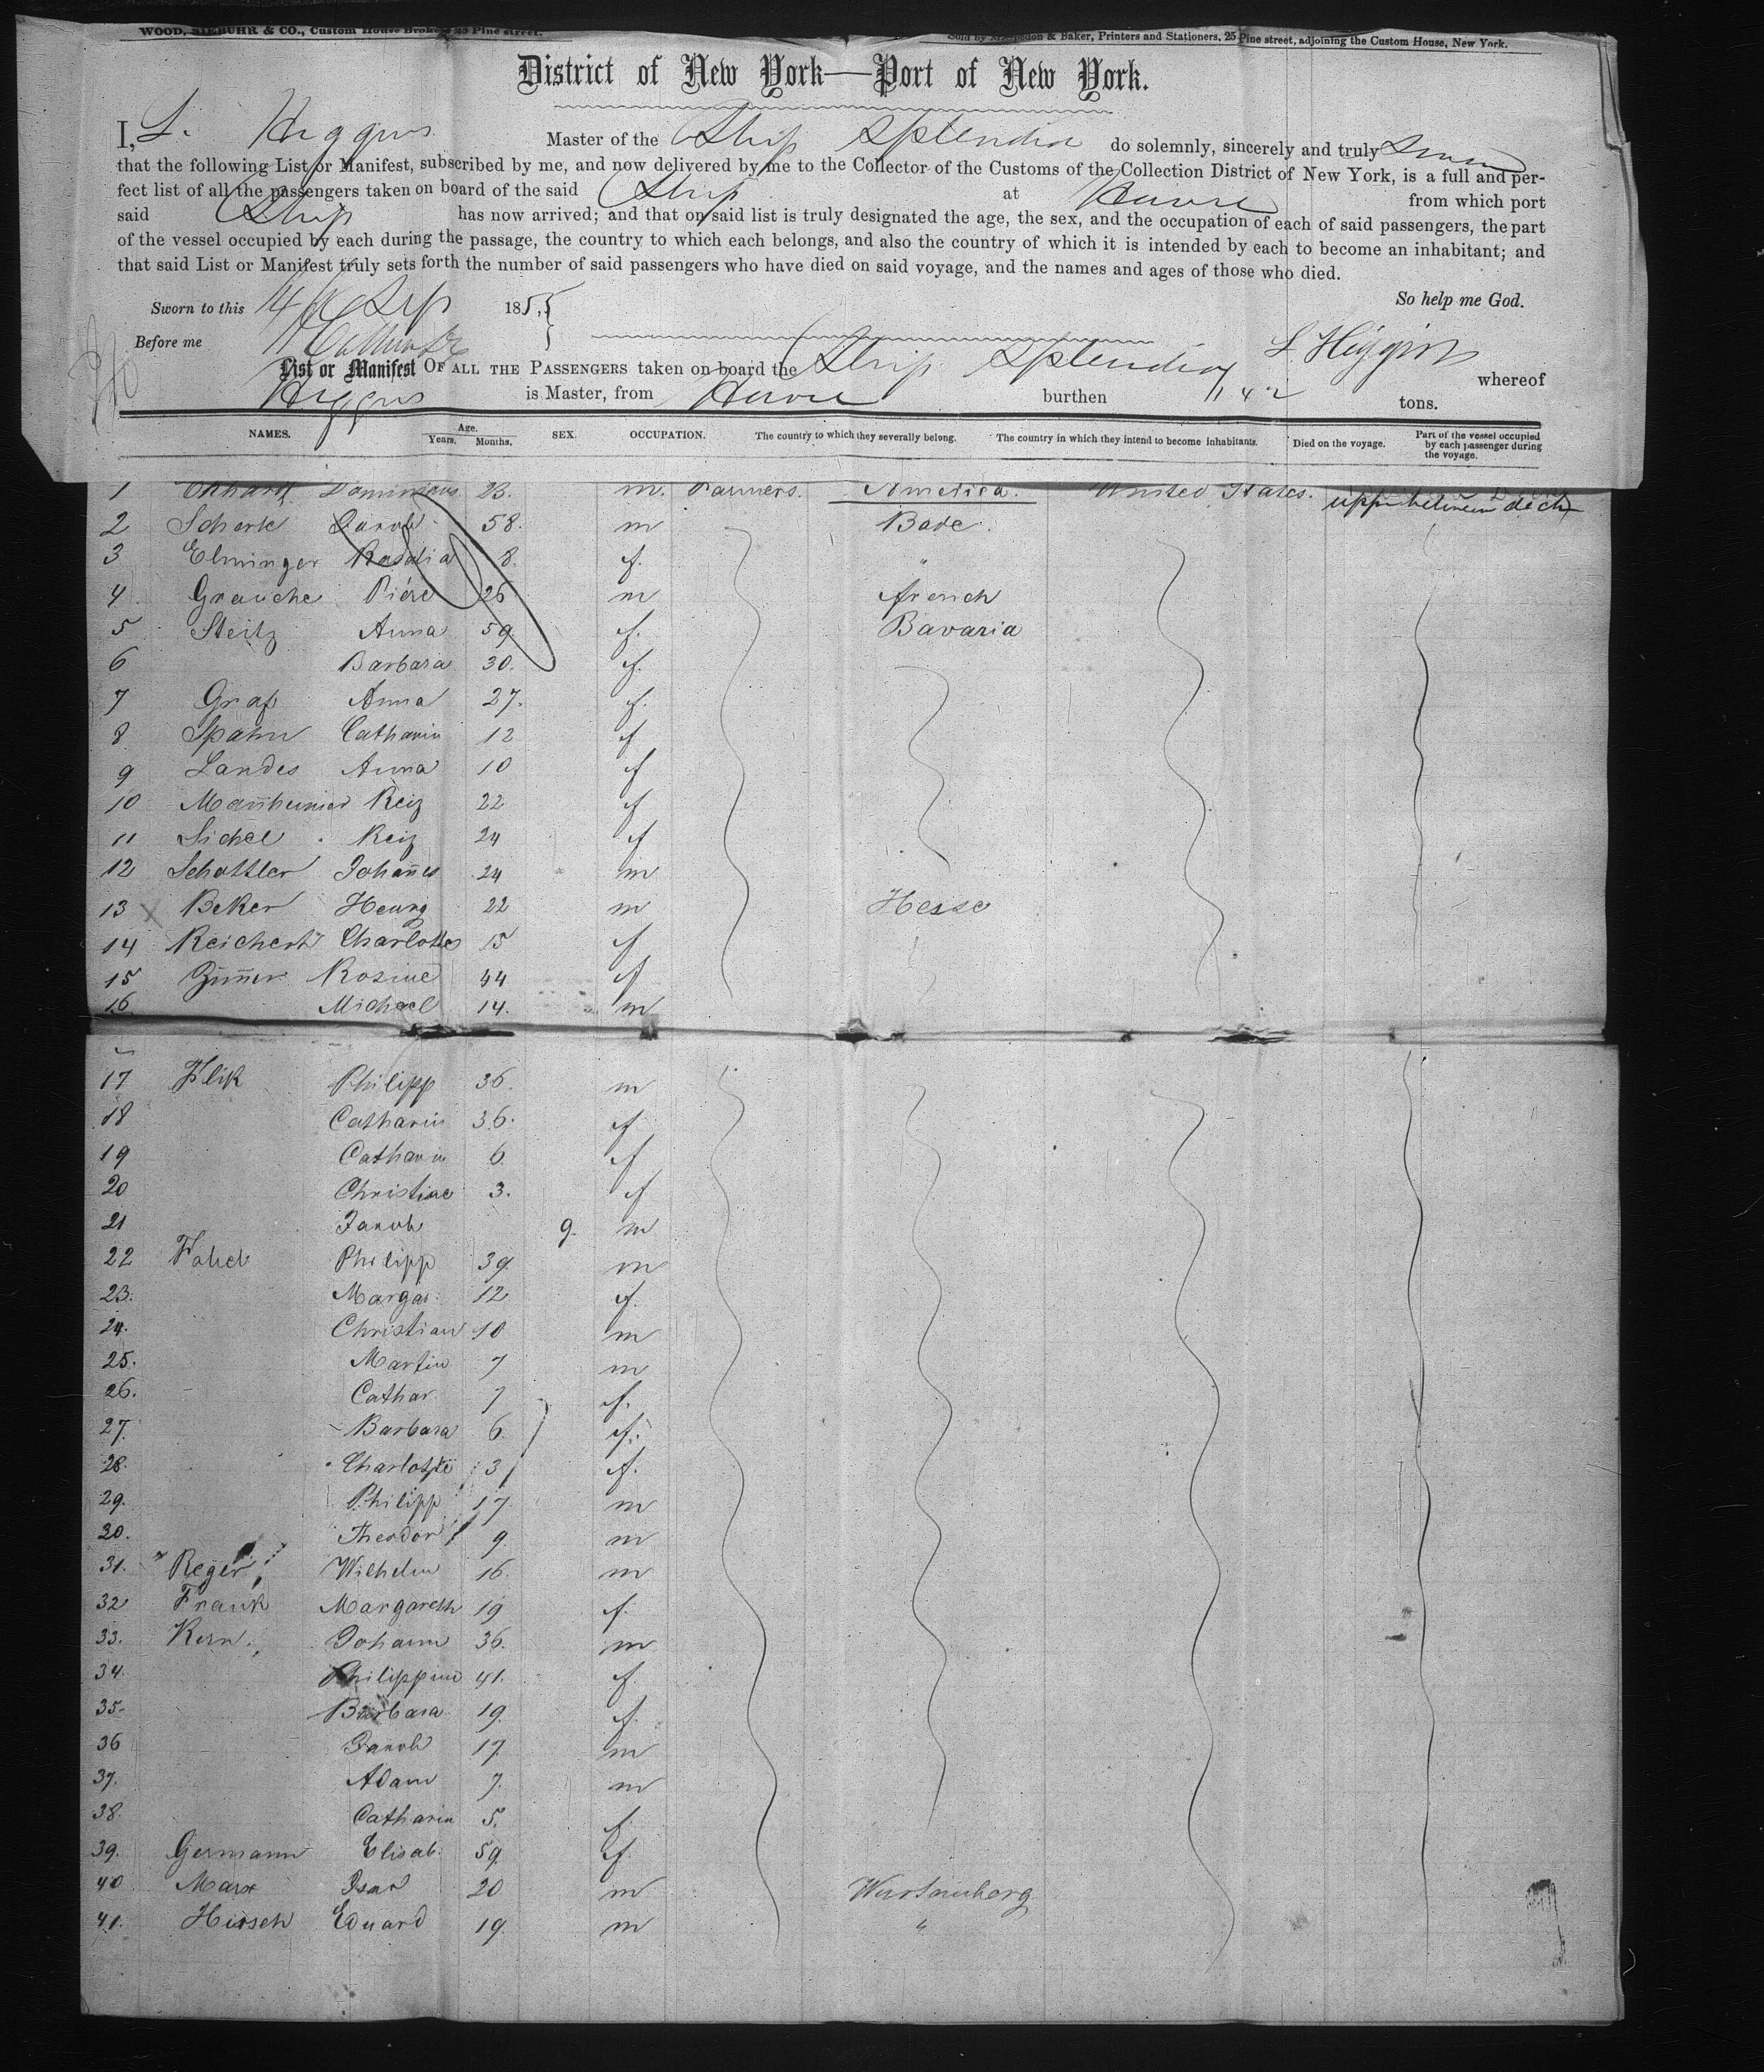 WOOD, NIEBUHR & CO., Custom House Brokers 25 Pine street.
Sold by & Baker, Printers and Stationers, 25 Pine street, adjoining the Custom House, New York.
District of New York—Port of New York.
I, L. Higgins Master of the Ship Splendid do solemnly, sincerely and truly Swear
that the following List or Manifest, subscribed by me, and now delivered by me to the Collector of the Customs of the Collection District of New York, is a full and per-
fect list of all the passengers taken on board of the said Ship at Havre from which port
said Ship has now arrived; and that on said list is truly designated the age, the sex, and the occupation of each of said passengers, the part
of the vessel occupied by each during the passage, the country to which each belongs, and also the country of which it is intended by each to become an inhabitant; and
that said List or Manifest truly sets forth the number of said passengers who have died on said voyage, and the names and ages of those who died.
So help me God.
Sworn to this 14 Sep 1855
Before me
L Higgins
List or Manifest OF ALL THE PASSENGERS taken on board the Ship Splendid whereof
Higgins is Master, from Havre burthen 1142 tons.
NAMES. Age. Years. Months. SEX. OCCUPATION. The country to which they severally belong. The country in which they intend to become inhabitants. Died on the voyage. Part of the vessel occupied by each passenger during the voyage.
1 Dominicus 23. m. Farmers. America. United States. upper between deck
2 Scherle 58. m Bade.
3 Elminger Rosalia 8. f. "
4 Grauche Piére 26 m french
5 Steitz Anna 59. f. Bavaria
6 Barbara 30. f.
7 Graf Anna 27. f.
8 Spahn Catharin 12 f
9 Landes Anna 10 f
10 Reiz 22 f
11 Sichel Reiz 24 f
12 Schattler Johannes 24 m
13 Beker Henry 22 m Hesse
14 Reichert Charlotte 15 f
15 Zimmer Rosine 44 f
16 Michael 14. m
17 Flik Philipp 36. m
18 Catharin 36. f
19 Catharin 6. f
20 Christine 3. f
21 Jacob 9. m
22 Philipp 39. m
23. Margar. 12. f.
24. Christian 10 m
25. Martin 7 m
26. Cathar. 7 f.
27. Barbara 6. f.
28. Charlotte 3 f.
29. Philipp 17 m
30. Theodor 9. m
31. Reger Wilhelm 16. m
32 Frank Margareth 19 f.
33. Kern Johann 36. m
34. Philippine 41. f.
35. Barbara 19. f.
36 Jacob 17. m
37. Adam 7. m
38. Catharin 5. f.
39. Germann Elisab. 59. f.
40 Marx Isac 20 m Wurtemberg
41. Hirsch Eduard 19. m "